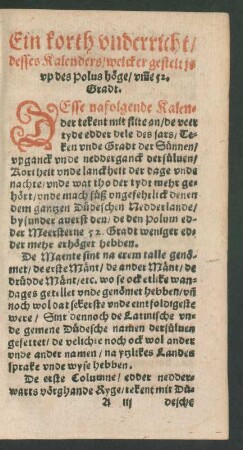 Ein korth vnderricht/
desses Kalenders/ welcker gestelt js
vp des Polus höge/ vmme 52.
Gradt.
DEsse nafolgende Kalen-
der tekent mit flite an/ de veer
tyde edder dele des jars/ Te-
ken vnde Gradt der Sünnen/
vpganck vnde nedderganck dersüluen/
Kortheit vnde lanckheit der dage vnde
nachte/ vnde wat tho der tydt mehr ge-
hört/ vnde mach süß vngefehrlick denen
dem gantzen Düdeschen Nedderlande/
bysunder auerst den/ de den Polum ed-
der Meersterne 52. Gradt weniger ed-
der mehr erhöger hebben.
De Maente sint na erem talle genö-
met/ de erste Mânt/ de ander Mânt/ de
drüdde Mânt/ etc. wo se ock etlike wan-
dages getellet vnde genömet hebben/ vñ
noch wol dat sekerste vnde eintfoldigeste
were/ Sint dennoch de Latinische vn-
de gemene Düdesche namen dersüluen
gesettet/ de velichte noch ock wol ander
vnde ander namen/ na yzlikes Landes
sprake vnde wyse hebben.
De erste Columne/ edder nedder-
warts vörghande Ryge/ tekent mit Dü-
A iij
desche